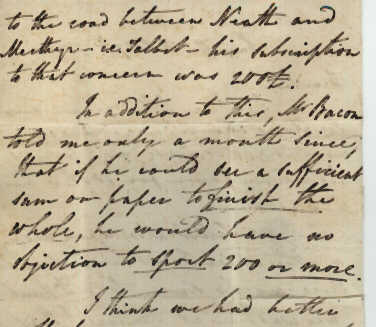 to the road between Neath and
Merthyr – ie. Talbot – his subscription
to that concern was 200£.
In addition to this, Mr Bacon
told me only a month since,
that if he could see a sufficient
sum on paper to finish the
whole, he would have no
objection to sport 200 or more.
I think we had better